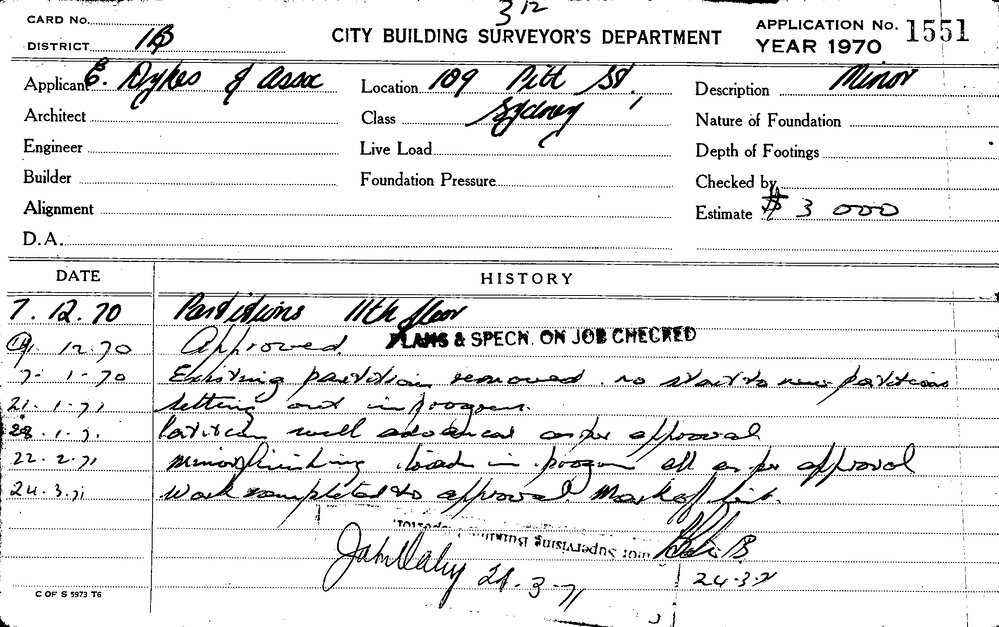 312
CARD No.
CITY BUILDING SURVEYOR'S DEPARTMENT
APPLICATION No. 1551
DISTRICT 1B
YEAR 1970
Applicant E. Dykes & Assoc
Location 109 Pitt St,
Description Minor
Architect
Class Sydney
Nature of Foundation
Engineer
Live Load
Depth of Footings
Builder
Foundation Pressure
Checked by
Alignment
Estimate $ 3 000
D.A.
DATE
HISTORY
7. 12. 70 Partitions 11th floor
12.70 Approved. PLANS & SPECN. ON JOB CHECKED
7. 1.70 Existing partition removed. no start to new partitions
21. 1.71 Setting out in progress.
28. 1.71 Partition well advanced as per approval
22. 2.71 Minor finishing in progress all as per approval
24. 3.71 Work completed to approval Mark off
Supervising Building
24.3.71
C OF S 5973 T6